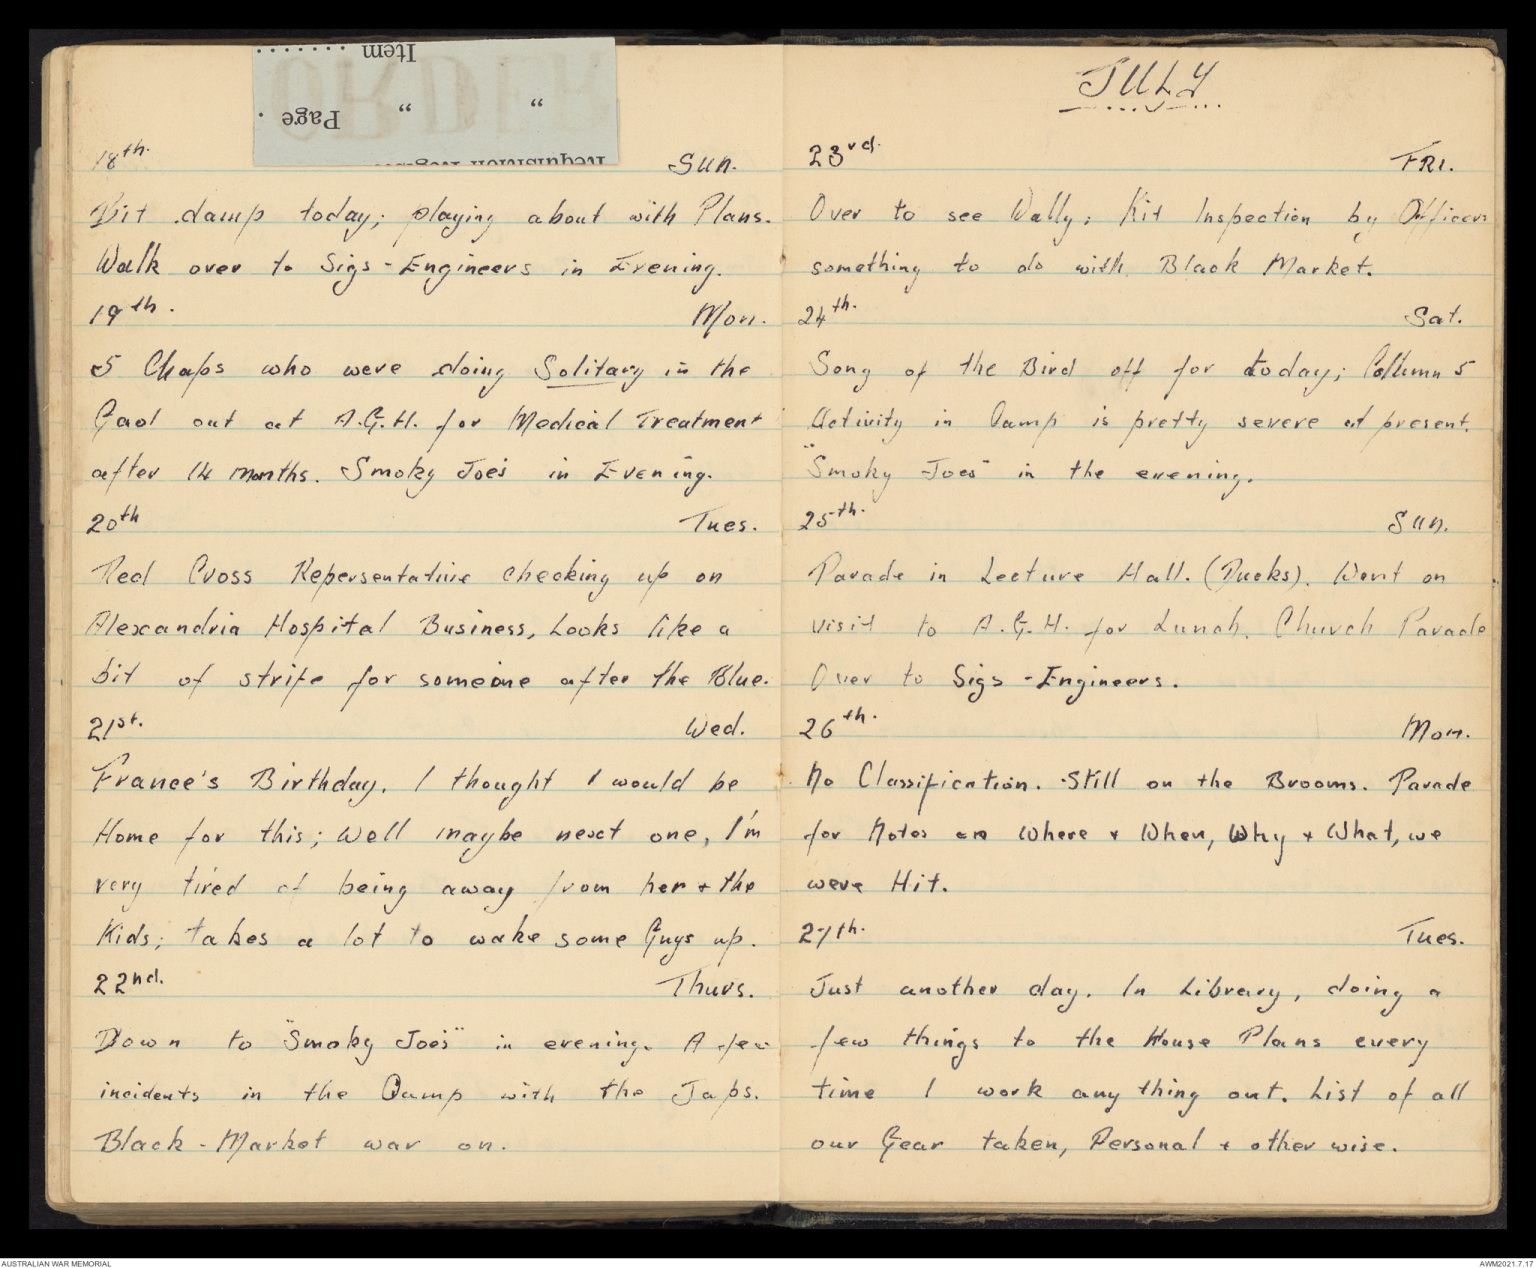 Item .......
Page " "
Requisition Regis
18th. Sun.
Bit damp today; playing about with Plans.
Walk over to Sigs - Engineers in Evening.
19th. Mon.
5 Chaps who were doing Solitary in the
Gaol out at A.G.H. for Medical Treatment
after 14 months. Smoky Joe's in Evening.
20th Tues.
Red Cross Repersentative checking up on
Alexandria Hospital Business, Looks like a
bit of strife for someone after the Blue.
21st. Wed.
France's Birthday. I thought I would be
Home for this; Well maybe next one, I'm
very tired of being away from her + the
Kids; takes a lot to wake some Guys up.
22nd. Thurs.
Down to "Smoky Joe's" in evening. A few
incidents in the Camp with the Japs.
Black - Market war on.
JULY
23rd. FRI.
Over to see Wally; Kit Inspection by Officers
something to do with Black Market.
24th. Sat.
Song of the Bird off for today; Collumn 5
Activity in Camp is pretty severe at present.
"Smoky Joes" in the evening.
25th. Sun.
Parade in Lecture Hall. (Ducks). Went on
visit to A.G.H. for Lunch. Church Parade
Over to Sigs - Engineers.
26th. Mon.
No Classification. Still on the Brooms. Parade
for Notes on Where + When, Why + What, we
were Hit.
27th. Tues.
Just another day. In Library, doing a
few things to the House Plans every
time I work any thing out. List of all
our Gear taken, Personal + other wise.
AUSTRALIAN WAR MEMORIAL AWM2021.7.17